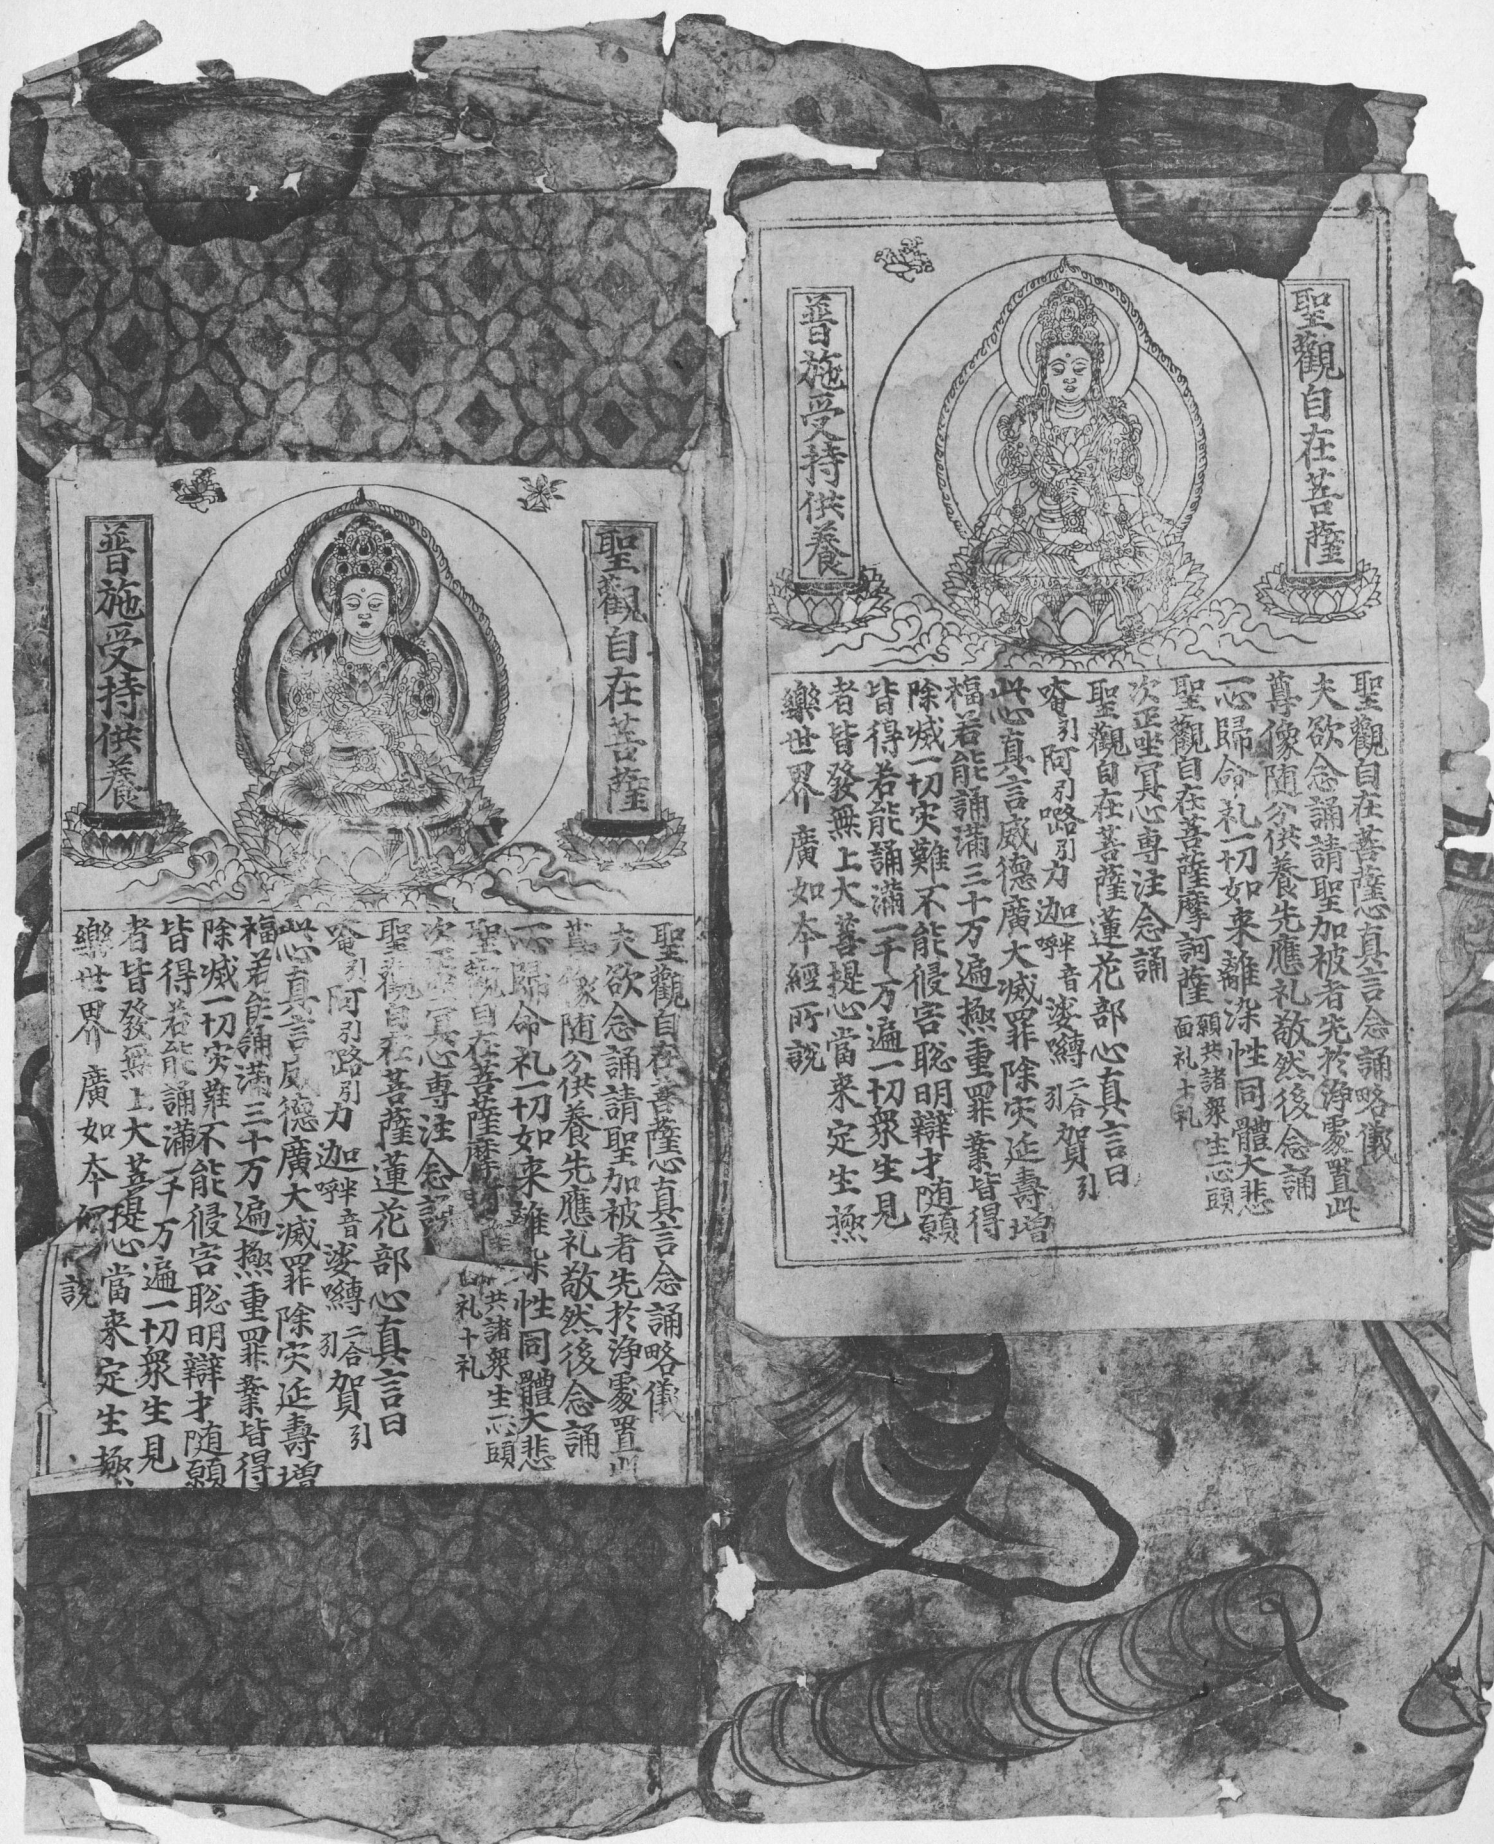 聖觀自在菩薩
普施受持供養
聖觀自在菩薩心真言念誦略儀
夫欲念誦請聖加被者先於淨處置此
尊像随分供養先應礼敬然後念誦
一心歸命礼一切如来離染性同體大悲
聖觀自在菩薩摩訶薩 願共諸衆生一心頭
面礼十礼
次正坐冥心專注念誦
聖觀自在菩薩蓮花部心真言曰
唵引阿引嚕引力迦半音呼娑嚩二合引賀引
此心真言威德廣大滅罪除灾延壽增
福若能誦滿三十万遍極重罪業皆得
除滅一切灾難不能侵害聡明辯才随願
皆得若能誦滿一千万遍一切衆生見
者皆發無上大菩提心當来定生極
樂世界廣如本經所說
聖觀自在菩薩
普施受持供養
聖觀自在菩薩心真言念誦略儀
夫欲念誦請聖加被者先於淨處置此
尊像随分供養先應礼敬然後念誦
一心歸命礼一切如来離染性同體大悲
聖觀自在菩薩摩 共諸衆生一心頭
礼十礼
次正坐冥心專注念誦
聖觀自在菩薩蓮花部心真言曰
唵引阿引嚕引力迦半音呼娑嚩二合引賀引
此心真言威德廣大滅罪除灾延壽增
福若能誦滿三十万遍極重罪業皆得
除滅一切灾難不能侵害聡明辯才随願
皆得若能誦滿一千万遍一切衆生見
者皆發無上大菩提心當来定生極
樂世界廣如本 說